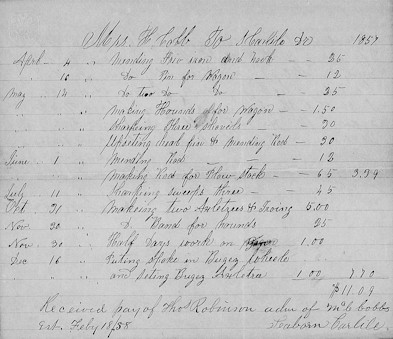 Mrs. H Cobb To S Carlile Dr 1857
April 4 " Mending Fire iron and hook 25
" 16 " Do Pin for Wagon 12
May 14 " Do two Do 25
" " " Making Hounds for wagon 1.50
" " " Sharpening three shovels 30
" " " Upseting heal pin & Mending Rod 30
June 1 " Mending Rod 12
" " " Making Rod for Plow Stock 65 3.39
July 11 " Sharpening sweeps three 45
Oct 21 " Making two Swletrees & Iroing 5.00
Nov 20 " Do Band for hounds 25
Nov 30 " Half Days work on 1.00
Dec 16 " Puting Spoke in Bugey Wheele
" " " and Seting Bugey 1.00 7.70
$11.09
Received pay of Thos Robinson adm of Mrs Cobbs
Est. Feby 18/58 Seaborn Carlile